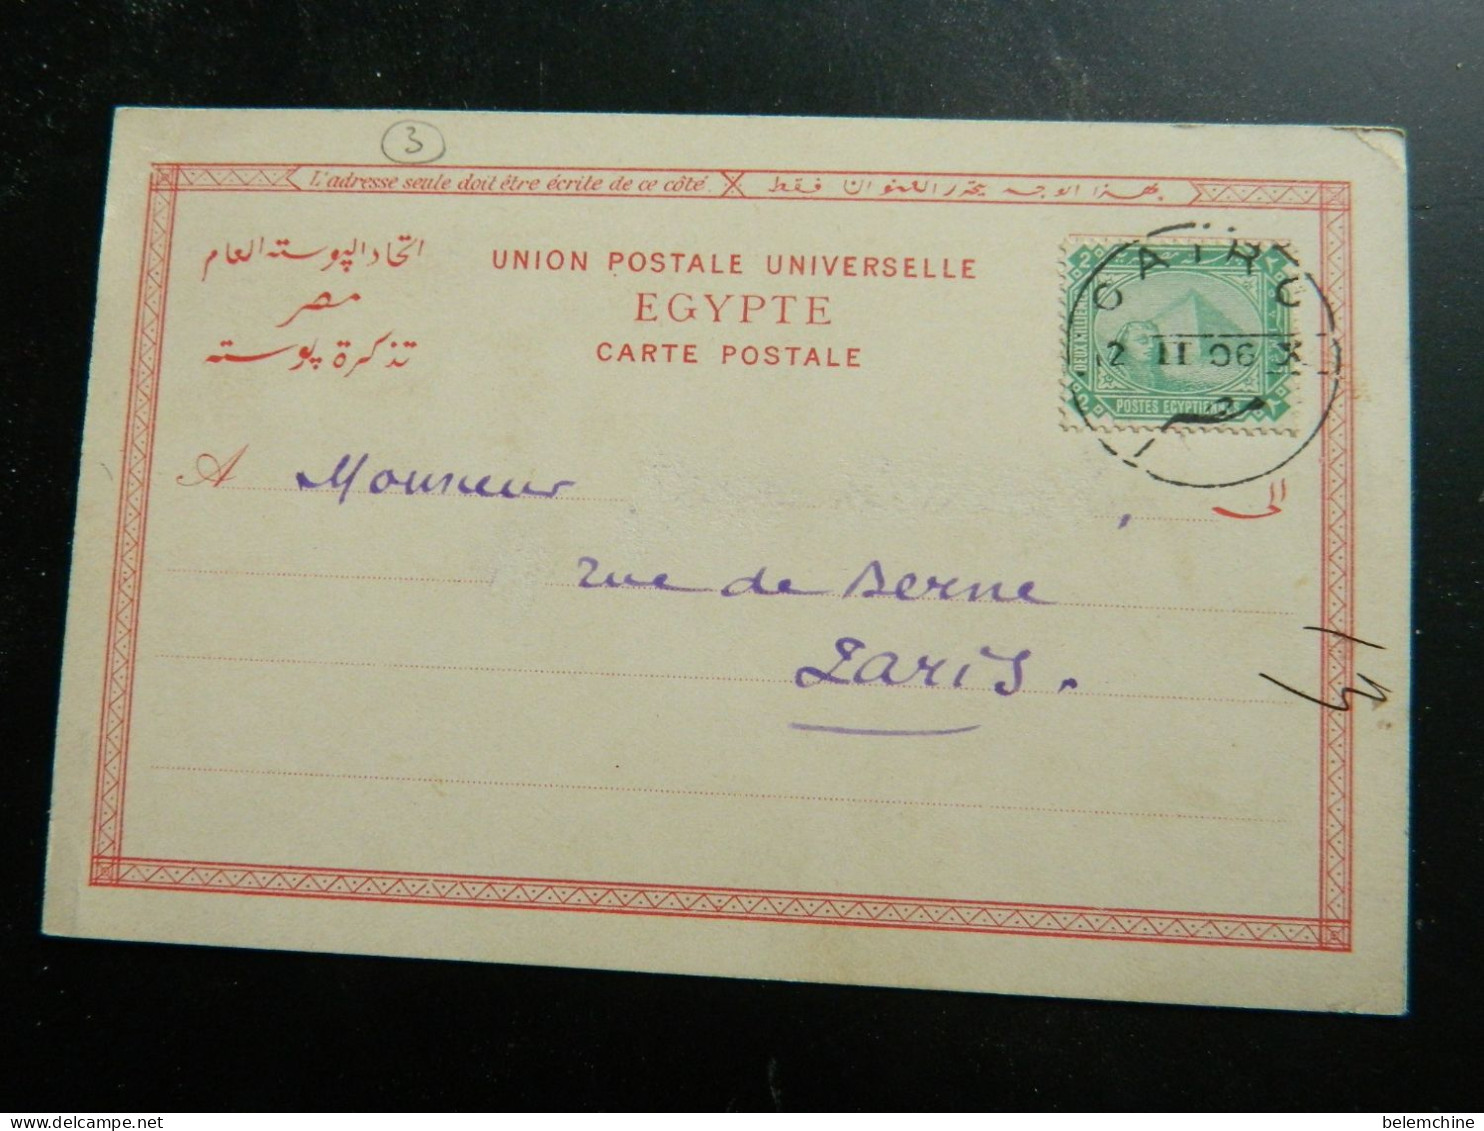 3
L'adresse seule doit être écrite de ce côté.
بهذا الوجه يحرر العنوان فقط
اتحاد البوسته العام
مصر
تذكرة بوسته
UNION POSTALE UNIVERSELLE
EGYPTE
CARTE POSTALE
CAIRO
12 II 06 X
POSTES EGYPTIENNES
A Monsieur
الى
rue de Berne
Paris.
belemchine